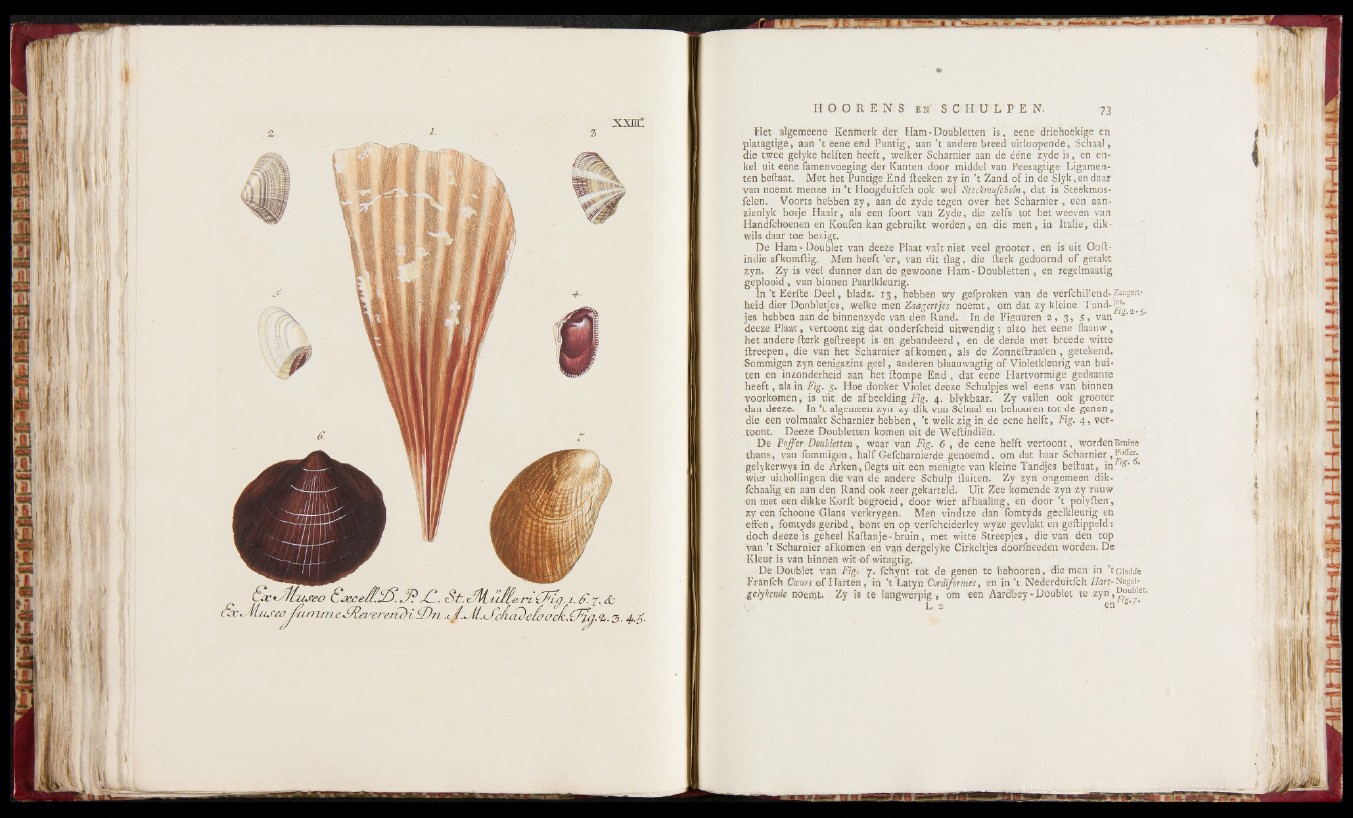 XXIII.
2
1.
3
5
4.
6
7
Ex Museo Excell. D. P. L. St. Mülleri Fig. 1. 6. 7. &
Ex Museo summe Reverendi Dn. A. M. Schadeloock. Fig. 2. 3. 4. 5.
HOORENS EN SCHULPEN. 73
Het algemeene Kenmerk der Ham-Doubletten is, eene driehoekige en
platagtige, aan 't eene end Puntig, aan 't andere breed uitloopende, Schaal,
die twee gelyke helften heeft, welker Scharnier aan de ééne zyde is, en en-
kel uit eene ſamenvoeging der Kanten door middel van Peesagtige Ligamen-
ten beſtaat. Met het Puntige End ſteeken zy in 't Zand of in de Slyk, en daar
van noemt menze in 't Hoogduitſch ook wel Steckmuſcheln, dat is Steekmos-
ſelen. Voorts hebben zy, aan de zyde tegen over het Scharnier, een aan-
zienlyk bosje Haair, als een ſoort van Zyde, die zelfs tot het weeven van
Handſchoenen en Kouſen kan gebruikt worden, en die men, in Italie, dik-
wils daar toe bezigt.
De Ham-Doublet van deeze Plaat valt niet veel grooter, en is uit Ooſt-
indie afkomſtig. Men heeft 'er, van dit ſlag, die ſterk gedoornd of getakt
zyn. Zy is veel dunner dan de gewoone Ham-Doubletten, en regelmaatig
geplooid, van binnen Paarlkleurig.
In 't Eerſte Deel, bladz. 13, hebben wy geſproken van de verſchillend- Zaagert-
heid dier Doubletjes, welke men Zaagertjes noemt, om dat zy kleine Tand- jes.
jes hebben aan de binnenzyde van den Rand. In de Figuuren 2, 3, 5, van Fig. 2-5.
deeze Plaat, vertoont zig dat onderſcheid uitwendig; alzo het eene flaauw,
het andere ſterk geſtreept is en gebandeerd, en de derde met breede witte
ſtreepen, die van het Scharnier afkomen, als de Zonneſtraalen, getekend.
Sommigen zyn eenigszins geel, anderen blaauwagtig of Violetkleurig van bui-
ten en inzonderheid aan het ſtompe End, dat eene Hartvormige gedaante
heeft, als in Fig. 5. Hoe donker Violet deeze Schulpjes wel eens van binnen
voorkomen, is uit de afbeelding Fig. 4. blykbaar. Zy vallen ook grooter
dan deeze. In 't algemeen zyn zy dik van Schaal en behooren tot de genen,
die een volmaakt Scharnier hebben, 't welk zig in de eene helft, Fig. 4, ver-
toont. Deeze Doubletten komen uit de Weſtindiën.
De Poffer-Doubletten, waar van Fig. 6, de eene helft vertoont, worden Bruine
thans, van ſommigen, half Geſcharnierde genoemd, om dat haar Scharnier, Poffer.
gelykerwys in de Arken, ſlegts uit een menigte van kleine Tandjes beſtaat, in Fig. 6.
wier uithollingen die van de andere Schulp ſluiten. Zy zyn ongemeen dik-
ſchaalig en aan den Rand ook zeer gekarteld. Uit Zee komende zyn zy ruuw
en met een dikke Korſt begroeid, door wier afhaaling, en door 't polyſten,
zy een ſchoone Glans verkrygen. Men vindtze dan ſomtyds geelkleurig en
effen, ſomtyds geribd, bont en op verſcheiderley wyze gevlakt en geſtippeld:
doch deeze is geheel Kaſtanje-bruin, met witte Streepjes, die van den top
van 't Scharnier afkomen en van dergelyke Cirkeltjes doorſneeden worden. De
Kleur is van binnen wit of witagtig.
De Doublet van Fig. 7. ſchynt tot de genen te behooren, die men in 't Gladde
Franſch Cœurs of Harten, in 't Latyn Cordiformes, en in 't Nederduitſch Hart- Nagel-
gelykende noemt. Zy is te langwerpig, om een Aardbey-Doublet te zyn, Doublet.
L 2 en Fig. 7.